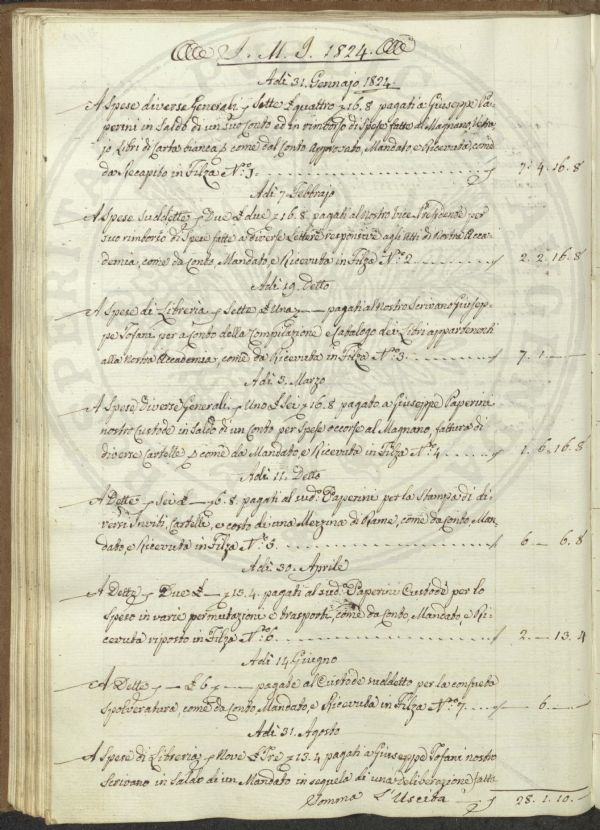 I. M. I. 1824.
Adi 31. Gennajo 1824.
A Spese diverse Generali Sette £ quattro 16.8 pagati a Giuseppe Pa-
perini in Saldo di un suo Conto ed in rimborso di Spese fatte al Magnano,
jo Libri di Carta bianca, come dal Conto Approvato, Mandato, e Ricevuta, come
da Recapito in Filza N.o 1. 7. 4. 16. 8
Adi 7. Febbrajo
A Spese Suddette Due £ due 16.8 pagati al Nostro Vice Presidente per
suo rimborzo di Spese fatte a diverse Lettere responsive agli Atti di Nostra Acca-
demia, come da Conto, Mandato, e Ricevuta in Filza N.o 2. 2. 2. 16. 8
Adi 19. Detto
A Spese di Libreria Sette £ Una — pagati al Nostro Scrivano Giusep-
pe Tofani per a Conto della Compilazione e Catalogo dei Libri appartenenti
alla Nostra Accademia, come da Ricevuta in Filza N.o 3. 7. 1. —
Adi 3. Marzo
A Spese Diverse Generali Uno £ Sei 16.8 pagato a Giuseppe Paperini
nostro Custode in Saldo di un Conto per Spese occorse al Magnano, fattura di
diverse Cartelle, come da Mandato, e Ricevuta in Filza N.o 4 1. 6. 16. 8
Adi 11. Detto
A Dette Sei £ — 6.8 pagati al sud.o Paperini per la Stampa di di-
versi Inviti, Cartelle, e costo di una Mezzina di Rame, come da Conto, Man-
dato, e Ricevuta in Filza N.o 5. 6 — 6. 8
Adi 30. Aprile
A Dette Due £ — 13.4 pagati al sud.o Paperini Custode per lo
Speso in varie permutazioni e trasporti, come da Conto, Mandato e Ri-
cevuta riposto in Filza N.o 6. 2. — 13. 4
Adi 14 Giugno
A Dette — £ 6 — pagate al Custode suddetto per la consueta
Spolveratura, come da Conto Mandato, e Ricevuta in Filza N.o 7. — 6. —
Adi 31. Agosto
A Spese di Libreria Nove £ Tre 13.4 pagati a Giuseppe Tofani nostro
Scrivano in Saldo di un Mandato in sequela di una deliberazione fatta
Somma l'Uscita 28. 1. 10. —